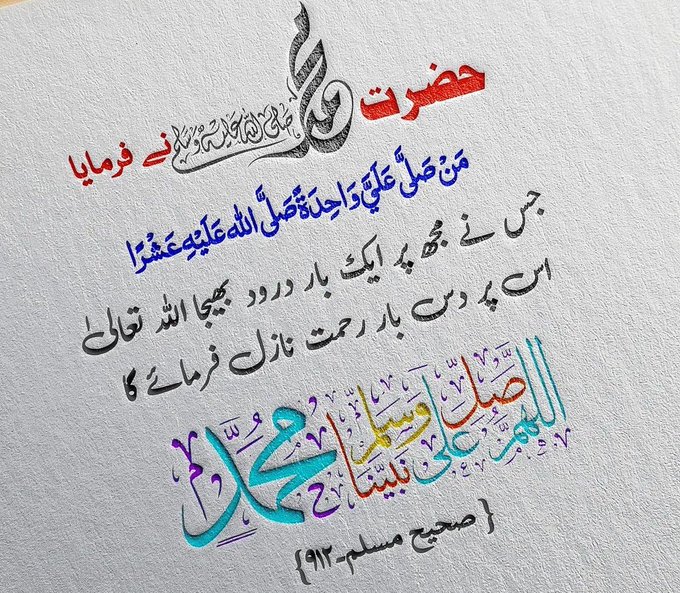 حضرت محمد صلی اللہ علیہ وسلم نے فرمایا
مَنْ صَلَّى عَلَيَّ وَاحِدَةً صَلَّى اللهُ عَلَيْهِ عَشْرًا
جس نے مجھ پر ایک بار درود بھیجا اللہ تعالیٰ
اس پر دس بار رحمت نازل فرمائے گا
اللهم صَلِّ وَسَلِّم عَلَى نَبِيِّنَا مُحَمَّدٍ
{صحیح مسلم۔۹۱۲}